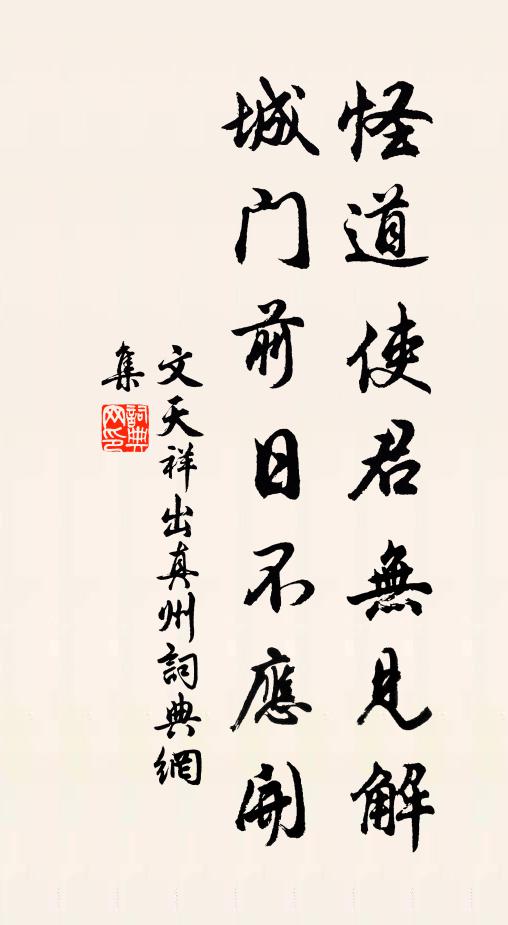 怪道使君無見解
城门前日不應開
文天祥出真州詞典網
集
詞典网印